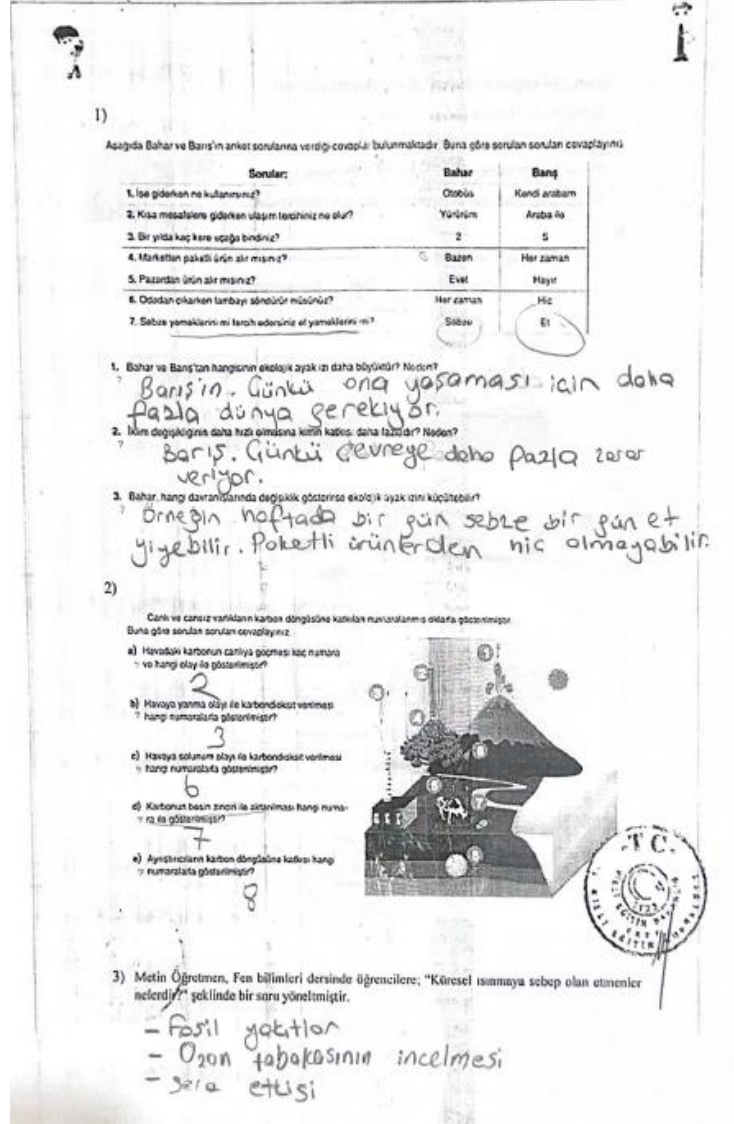 1)
Aşağıda Bahar ve Barış'ın anket sorularına verdiği cevaplar bulunmaktadır. Buna göre sorulan soruları cevaplayınız.
Sorular: Bahar Barış
1. İşe giderken ne kullanırsınız? Otobüs Kendi arabam
2. Kısa mesafelere giderken ulaşım tercihiniz ne olur? Yürürüm Araba ile
3. Bir yılda kaç kere uçağa bindiniz? 2 5
4. Marketten paketli ürün alır mısınız? Bazen Her zaman
5. Pazardan ürün alır mısınız? Evet Hayır
6. Odadan çıkarken lambayı söndürür müsünüz? Her zaman Hiç
7. Sebze yemeklerini mi tercih edersiniz et yemeklerini mi? Sebze Et
1. Bahar ve Barış'tan hangisinin ekolojik ayak izi daha büyüktür? Neden?
Barış'ın. Günkü ona yaşaması için daha
fazla dünya gerekiyor.
2. İklim değişikliğinin daha hızlı olmasına kimin katkısı daha fazladır? Neden?
Barış. Günkü çevreye daha fazla zarar
veriyor.
3. Bahar, hangi davranışlarında değişiklik gösterirse ekolojik ayak izini küçültebilir?
Örneğin haftada bir gün sebze bir gün et
yiyebilir. Paketli ürünlerden hiç almayabilir.
2)
Canlı ve cansız varlıkların karbon döngüsüne katkıları numaralanmış oklarla gösterilmiştir.
Buna göre sorulan soruları cevaplayınız.
a) Havadaki karbonun canlıya geçmesi kaç numara
ve hangi olay ile gösterilmiştir?
2
b) Havaya yanma olayı ile karbondioksit verilmesi
hangi numaralarla gösterilmiştir?
3
c) Havaya solunum olayı ile karbondioksit verilmesi
hangi numaralarla gösterilmiştir?
6
d) Karbonun besin zinciri ile aktarılması hangi numa-
ra ile gösterilmiştir?
7
e) Ayrıştırıcıların karbon döngüsüne katkısı hangi
numaralarla gösterilmiştir?
8
1
2
3
4
6
7
T C
3) Metin Öğretmen, Fen bilimleri dersinde öğrencilere; "Küresel ısınmaya sebep olan etmenler
nelerdir?" şeklinde bir soru yöneltmiştir.
- Fosil yakıtlar
- Ozon tabakasının incelmesi
- Sera etkisi